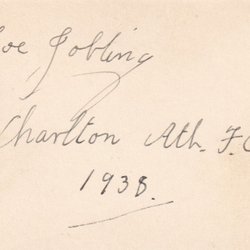 Joe Jobling
Charlton Ath. F.C
1938.